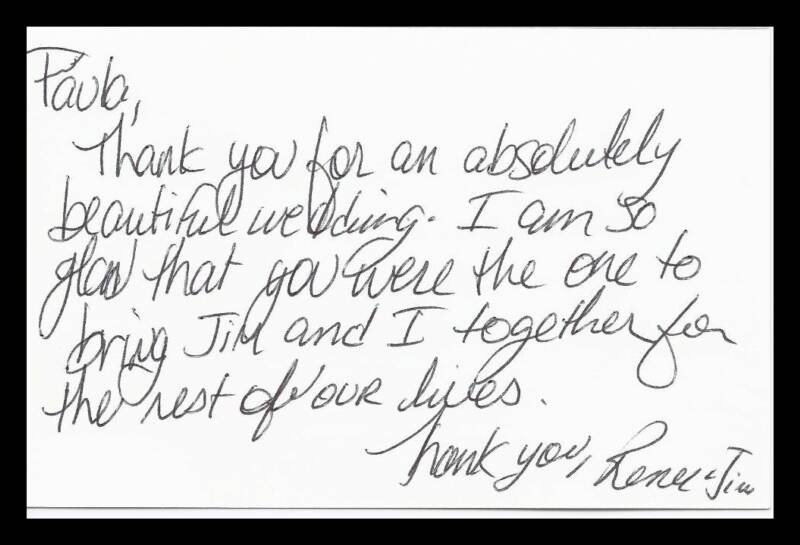 Paula,
Thank you for an absolutely
beautiful wedding. I am so
glad that you were the one to
bring Jim and I together for
the rest of our lives.
Thank you, Renee & Jim